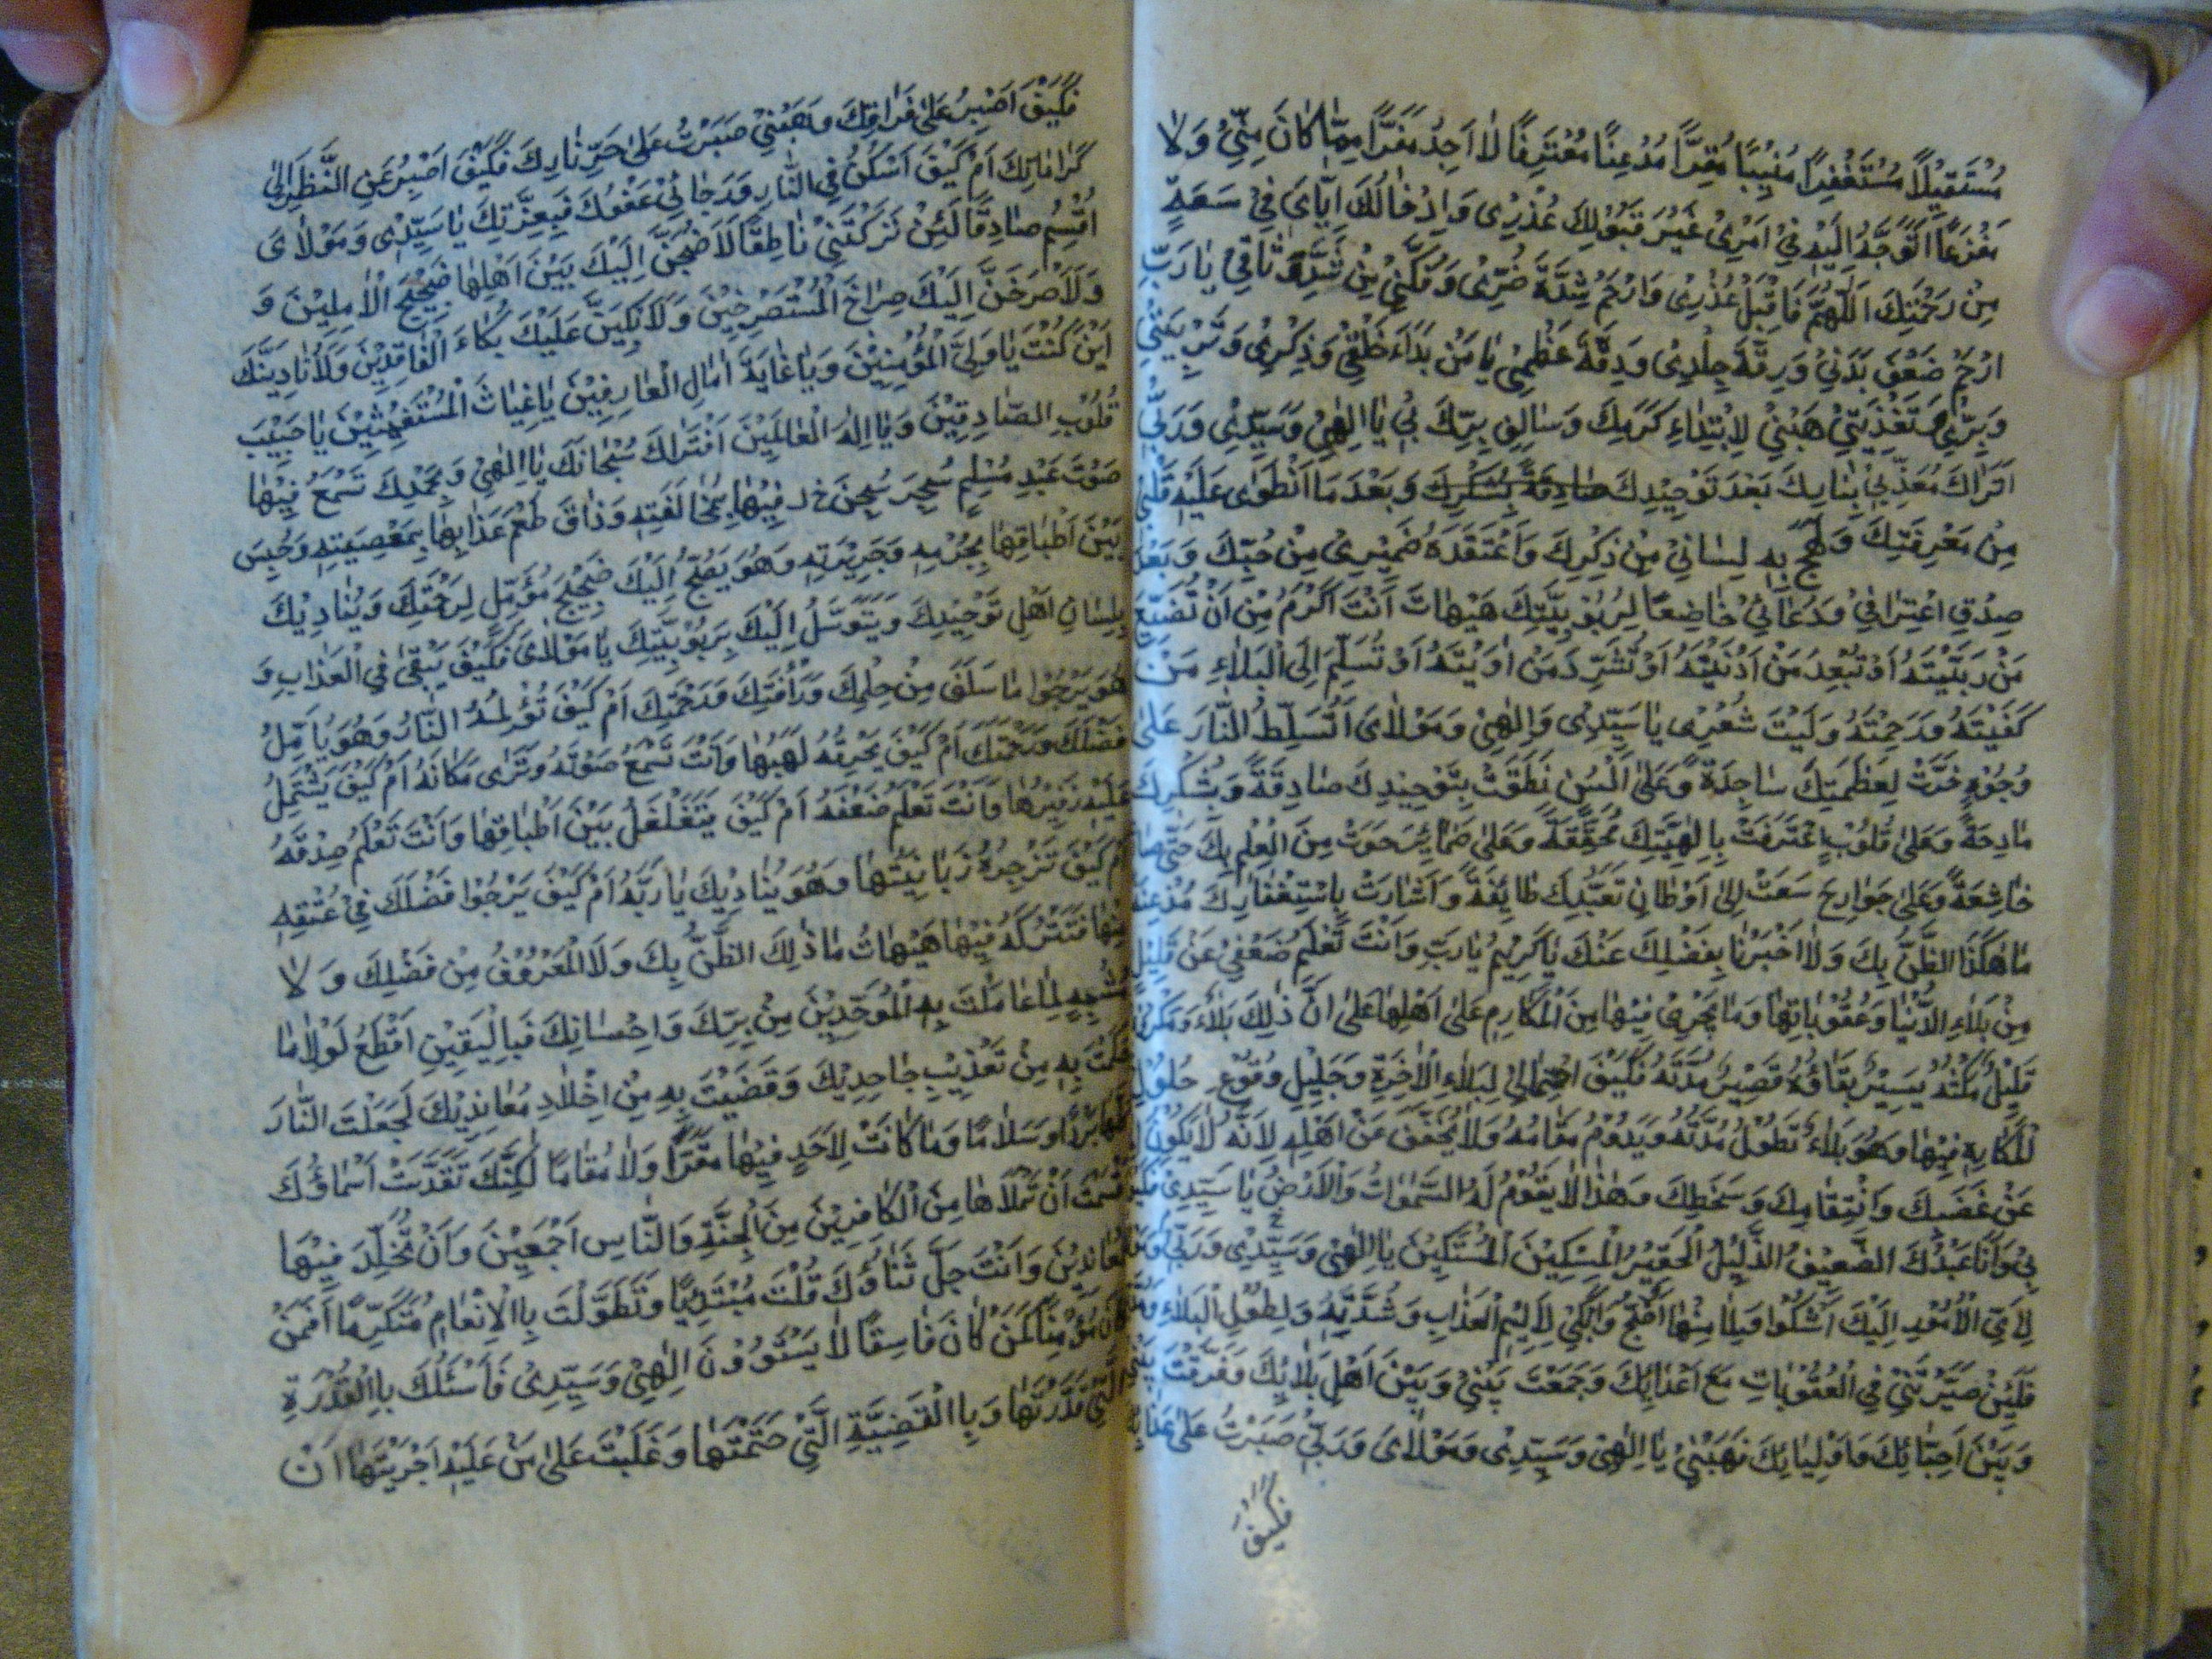 مُسْتَقِيلًا مُسْتَغْفِرًا مُنِيبًا مُقِرًّا مُذْعِنًا مُعْتَرِفًا لَا أَجِدُ مَفَرًّا مِمَّا كَانَ مِنِّي وَلَا
مَفْزَعًا أَتَوَجَّهُ إِلَيْهِ فِي أَمْرِي غَيْرَ قَبُولِكَ عُذْرِي وَإِدْخَالَكَ إِيَّايَ فِي سَعَةٍ
مِنْ رَحْمَتِكَ اللَّهُمَّ فَاقْبَلْ عُذْرِي وَارْحَمْ شِدَّةَ ضُرِّي وَفُكَّنِي مِنْ شَدِّ وَثَاقِي يَا رَبِّ
ارْحَمْ ضَعْفَ بَدَنِي وَرِقَّةَ جِلْدِي وَدِقَّةَ عَظْمِي يَا مَنْ بَدَأَ خَلْقِي وَذِكْرِي وَتَرْبِيَتِي
وَبِرِّي وَتَغْذِيَتِي هَبْنِي لِابْتِدَاءِ كَرَمِكَ وَسَالِفِ بِرِّكَ بِي يَا إِلَهِي وَسَيِّدِي وَرَبِّي
أَتُرَاكَ مُعَذِّبِي بِنَارِكَ بَعْدَ تَوْحِيدِكَ صَادِقَةً بِشُكْرِكَ وَبَعْدَ مَا انْطَوَى عَلَيْهِ قَلْبِي
مِنْ مَعْرِفَتِكَ وَلَهِجَ بِهِ لِسَانِي مِنْ ذِكْرِكَ وَاعْتَقَدَهُ ضَمِيرِي مِنْ حُبِّكَ وَبَعْدَ
صِدْقِ اعْتِرَافِي وَدُعَائِي خَاضِعًا لِرُبُوبِيَّتِكَ هَيْهَاتَ أَنْتَ أَكْرَمُ مِنْ أَنْ تُضَيِّعَ
مَنْ رَبَّيْتَهُ أَوْ تُبْعِدَ مَنْ أَدْنَيْتَهُ أَوْ تُشَرِّدَ مَنْ آوَيْتَهُ أَوْ تُسَلِّمَ إِلَى الْبَلَاءِ مَنْ
كَفَيْتَهُ وَرَحِمْتَهُ وَلَيْتَ شِعْرِي يَا سَيِّدِي وَإِلَهِي وَمَوْلَايَ أَتُسَلِّطُ النَّارَ عَلَى
وُجُوهٍ خَرَّتْ لِعَظَمَتِكَ سَاجِدَةً وَعَلَى أَلْسُنٍ نَطَقَتْ بِتَوْحِيدِكَ صَادِقَةً وَبِشُكْرِكَ
مَادِحَةً وَعَلَى قُلُوبٍ اعْتَرَفَتْ بِإِلَهِيَّتِكَ مُحَقِّقَةً وَعَلَى ضَمَائِرَ حَوَتْ مِنَ الْعِلْمِ بِكَ حَتَّى
خَاشِعَةً وَعَلَى جَوَارِحَ سَعَتْ إِلَى أَوْطَانِ تَعَبُّدِكَ طَائِعَةً وَأَشَارَتْ بِاسْتِغْفَارِكَ مُذْعِنَةً
مَا هَكَذَا الظَّنُّ بِكَ وَلَا أُخْبِرْنَا بِفَضْلِكَ عَنْكَ يَا كَرِيمُ يَا رَبِّ وَأَنْتَ تَعْلَمُ ضَعْفِي عَنْ قَلِيلٍ
مِنْ بَلَاءِ الدُّنْيَا وَعُقُوبَاتِهَا وَمَا يَجْرِي فِيهَا مِنَ الْمَكَارِهِ عَلَى أَهْلِهَا عَلَى أَنَّ ذَلِكَ بَلَاءٌ وَمَكْرُوهٌ
قَلِيلٌ مَكْثُهُ يَسِيرٌ بَقَاؤُهُ قَصِيرٌ مُدَّتُهُ فَكَيْفَ احْتِمَالِي لِبَلَاءِ الْآخِرَةِ وَجَلِيلِ وُقُوعِ حُلُولِ
الْمَكَارِهِ فِيهَا وَهُوَ بَلَاءٌ تَطُولُ مُدَّتُهُ وَيَدُومُ مَقَامُهُ وَلَا يُخَفَّفُ عَنْ أَهْلِهِ لِأَنَّهُ لَا يَكُونُ
عَنْ غَضَبِكَ وَانْتِقَامِكَ وَسَخَطِكَ وَهَذَا لَا يَقُومُ لَهُ السَّمَوَاتُ وَالْأَرْضُ يَا سَيِّدِي فَكَيْفَ
بِي وَأَنَا عَبْدُكَ الضَّعِيفُ الذَّلِيلُ الْحَقِيرُ الْمِسْكِينُ الْمُسْتَكِينُ يَا إِلَهِي وَسَيِّدِي وَرَبِّي
لِأَيِّ الْأُمُورِ إِلَيْكَ أَشْكُوا وَلِمَا مِنْهَا أَضِجُّ وَأَبْكِي لِأَلِيمِ الْعَذَابِ وَشِدَّتِهِ وَلِطُولِ الْبَلَاءِ
فَلَئِنْ صَيَّرْتَنِي فِي الْعُقُوبَاتِ مَعَ أَعْدَائِكَ وَجَمَعْتَ بَيْنِي وَبَيْنَ أَهْلِ بَلَائِكَ وَفَرَّقْتَ بَيْنِي
وَبَيْنَ أَحِبَّائِكَ وَأَوْلِيَائِكَ فَهَبْنِي يَا إِلَهِي وَسَيِّدِي وَمَوْلَايَ وَرَبِّي صَبَرْتُ عَلَى عَذَابِكَ
فَكَيْفَ
فَكَيْفَ أَصْبِرُ عَلَى فِرَاقِكَ وَهَبْنِي صَبَرْتُ عَلَى حَرِّ نَارِكَ فَكَيْفَ أَصْبِرُ عَنِ النَّظَرِ إِلَى
كَرَامَاتِكَ أَمْ كَيْفَ أَسْكُنُ فِي النَّارِ وَرَجَائِي عَفْوُكَ فَبِعِزَّتِكَ يَا سَيِّدِي وَمَوْلَايَ
أُقْسِمُ صَادِقًا لَئِنْ تَرَكْتَنِي نَاطِقًا لَأَضِجَّنَّ إِلَيْكَ بَيْنَ أَهْلِهَا ضَجِيجَ الْآمِلِينَ وَ
وَلَأَصْرُخَنَّ إِلَيْكَ صُرَاخَ الْمُسْتَصْرِخِينَ وَلَأَبْكِيَنَّ عَلَيْكَ بُكَاءَ الْفَاقِدِينَ وَلَأُنَادِيَنَّكَ
أَيْنَ كُنْتَ يَا وَلِيَّ الْمُؤْمِنِينَ وَيَا غَايَةَ آمَالِ الْعَارِفِينَ يَا غِيَاثَ الْمُسْتَغِيثِينَ يَا حَبِيبَ
قُلُوبِ الصَّادِقِينَ وَيَا إِلَهَ الْعَالَمِينَ أَفَتُرَاكَ سُبْحَانَكَ يَا إِلَهِي وَبِحَمْدِكَ تَسْمَعُ فِيهَا
صَوْتَ عَبْدٍ مُسْلِمٍ سُجِنَ خ د فِيهَا بِمُخَالَفَتِهِ وَذَاقَ طَعْمَ عَذَابِهَا بِمَعْصِيَتِهِ وَحُبِسَ
بَيْنَ أَطْبَاقِهَا بِجُرْمِهِ وَجَرِيرَتِهِ وَهُوَ يَضِجُّ إِلَيْكَ ضَجِيجَ مُؤَمِّلٍ لِرَحْمَتِكَ وَيُنَادِيكَ
بِلِسَانِ أَهْلِ تَوْحِيدِكَ وَيَتَوَسَّلُ إِلَيْكَ بِرُبُوبِيَّتِكَ يَا مَوْلَايَ فَكَيْفَ يَبْقَى فِي الْعَذَابِ وَ
هُوَ يَرْجُوا مَا سَلَفَ مِنْ حِلْمِكَ وَرَأْفَتِكَ وَرَحْمَتِكَ أَمْ كَيْفَ تُؤْلِمُهُ النَّارُ وَهُوَ يَأْمُلُ
فَضْلَكَ وَرَحْمَتَكَ أَمْ كَيْفَ يُحْرِقُهُ لَهِيبُهَا وَأَنْتَ تَسْمَعُ صَوْتَهُ وَتَرَى مَكَانَهُ أَمْ كَيْفَ يَشْتَمِلُ
عَلَيْهِ زَفِيرُهَا وَأَنْتَ تَعْلَمُ ضَعْفَهُ أَمْ كَيْفَ يَتَغَلْغَلُ بَيْنَ أَطْبَاقِهَا وَأَنْتَ تَعْلَمُ صِدْقَهُ
أَمْ كَيْفَ تَزْجُرُهُ زَبَانِيَتُهَا وَهُوَ يُنَادِيكَ يَا رَبَّهُ أَمْ كَيْفَ يَرْجُوا فَضْلَكَ فِي عِتْقِهِ
مِنْهَا فَتَتْرُكُهُ فِيهَا هَيْهَاتَ مَا ذَلِكَ الظَّنُّ بِكَ وَلَا الْمَعْرُوفُ مِنْ فَضْلِكَ وَلَا
مُشْبِهٍ لِمَا عَامَلْتَ بِهِ الْمُوَحِّدِينَ مِنْ بِرِّكَ وَإِحْسَانِكَ فَبِالْيَقِينِ أَقْطَعُ لَوْلَا مَا
حَكَمْتَ بِهِ مِنْ تَعْذِيبِ جَاحِدِيكَ وَقَضَيْتَ بِهِ مِنْ إِخْلَادِ مُعَانِدِيكَ لَجَعَلْتَ النَّارَ
كُلَّهَا بَرْدًا وَسَلَامًا وَمَا كَانَتْ لِأَحَدٍ فِيهَا مَقَرًّا وَلَا مُقَامًا لَكِنَّكَ تَقَدَّسَتْ أَسْمَاؤُكَ
أَقْسَمْتَ أَنْ تَمْلَأَهَا مِنَ الْكَافِرِينَ مِنَ الْجِنَّةِ وَالنَّاسِ أَجْمَعِينَ وَأَنْ تُخَلِّدَ فِيهَا
الْمُعَانِدِينَ وَأَنْتَ جَلَّ ثَنَاؤُكَ قُلْتَ مُبْتَدِئًا وَتَطَوَّلْتَ بِالْإِنْعَامِ مُتَكَرِّمًا أَفَمَنْ
كَانَ مُؤْمِنًا كَمَنْ كَانَ فَاسِقًا لَا يَسْتَوُونَ إِلَهِي وَسَيِّدِي فَأَسْئَلُكَ بِالْقُدْرَةِ
الَّتِي قَدَّرْتَهَا وَبِالْقَضِيَّةِ الَّتِي حَتَمْتَهَا وَغَلَبْتَ عَلَى مَنْ عَلَيْهِ أَجْرَيْتَهَا أَنْ